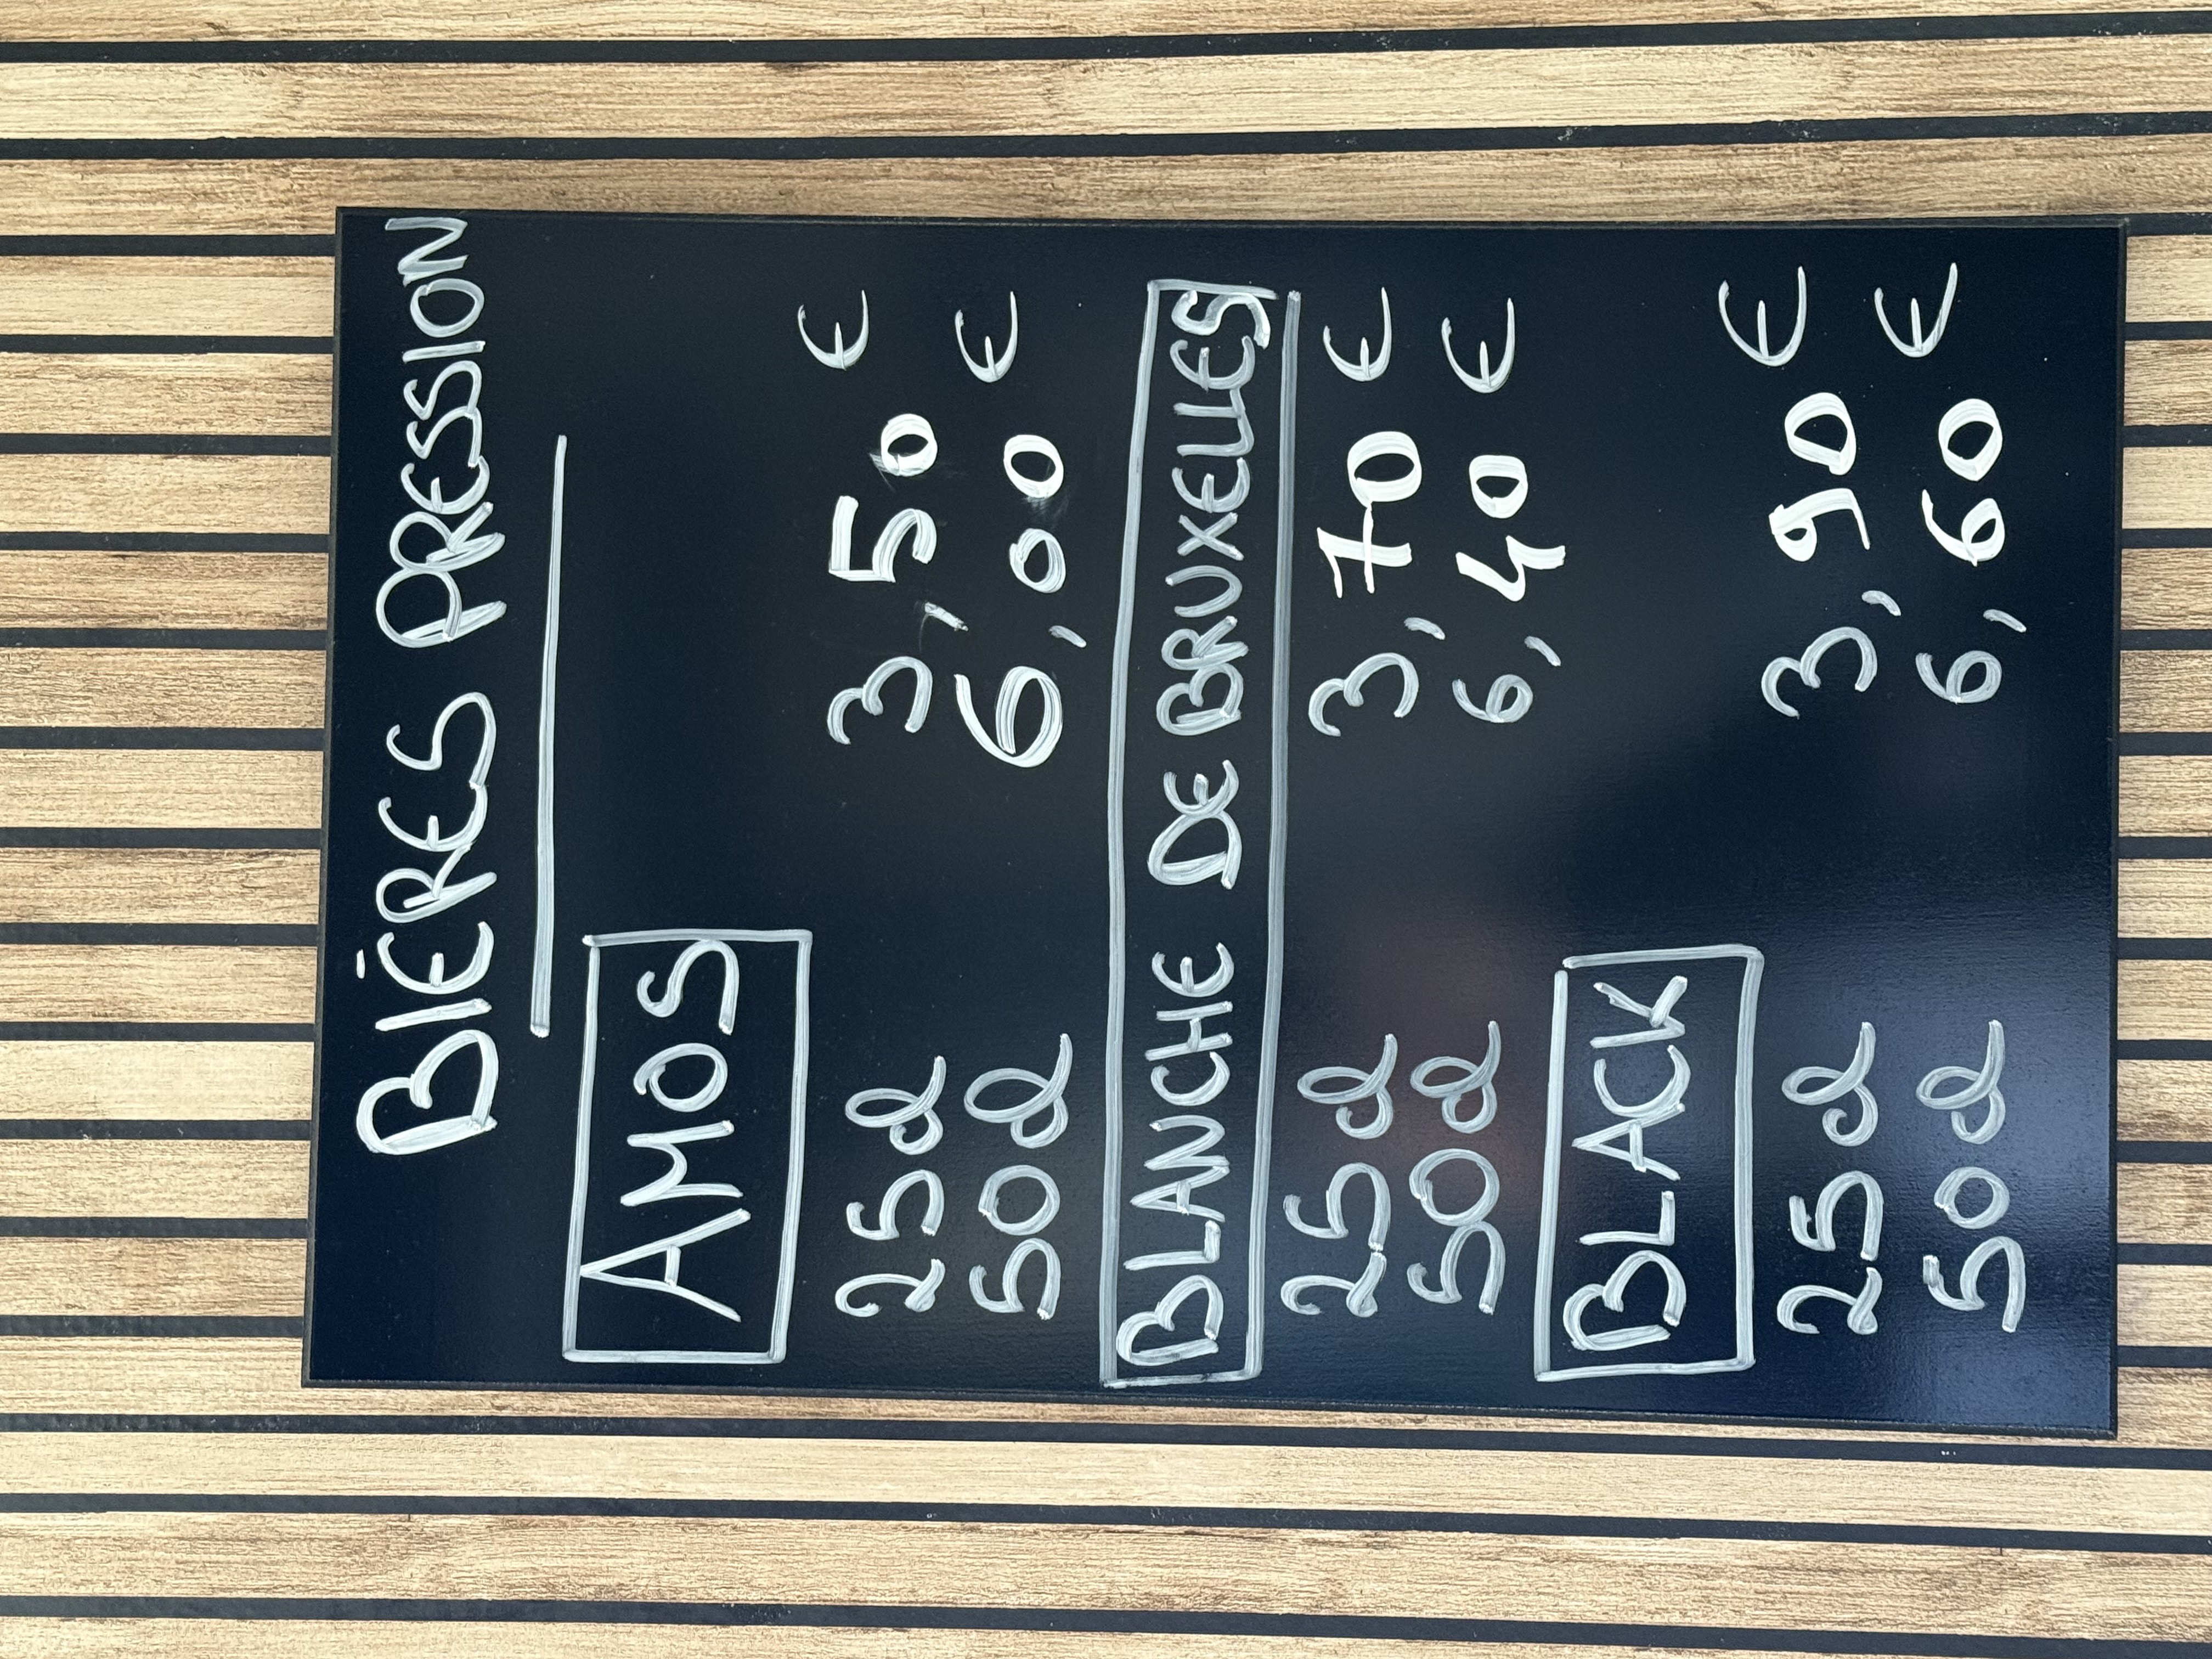 BIÈRES PRESSION
AMOS
25cl 3,50 €
50cl 6,00 €
BLANCHE DE BRUXELLES
25cl 3,70 €
50cl 6,40 €
BLACK
25cl 3,90 €
50cl 6,60 €